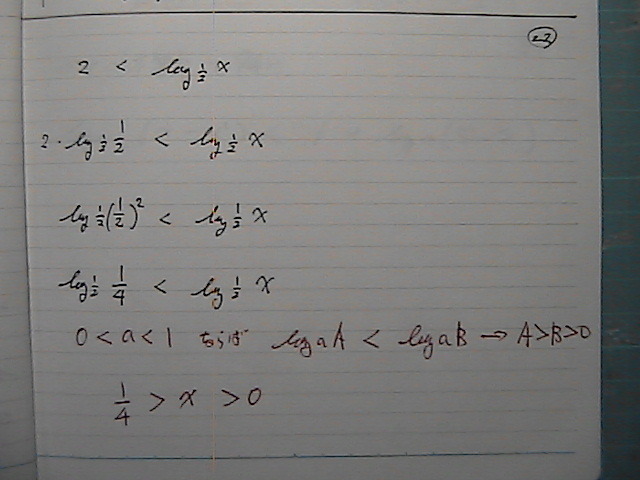 23
2 < log 1/2 x
2・log 1/2 1/2 < log 1/2 x
log 1/2 (1/2)² < log 1/2 x
log 1/2 1/4 < log 1/2 x
0 < a < 1 ならば log a A < log a B → A > B > 0
1/4 > x > 0